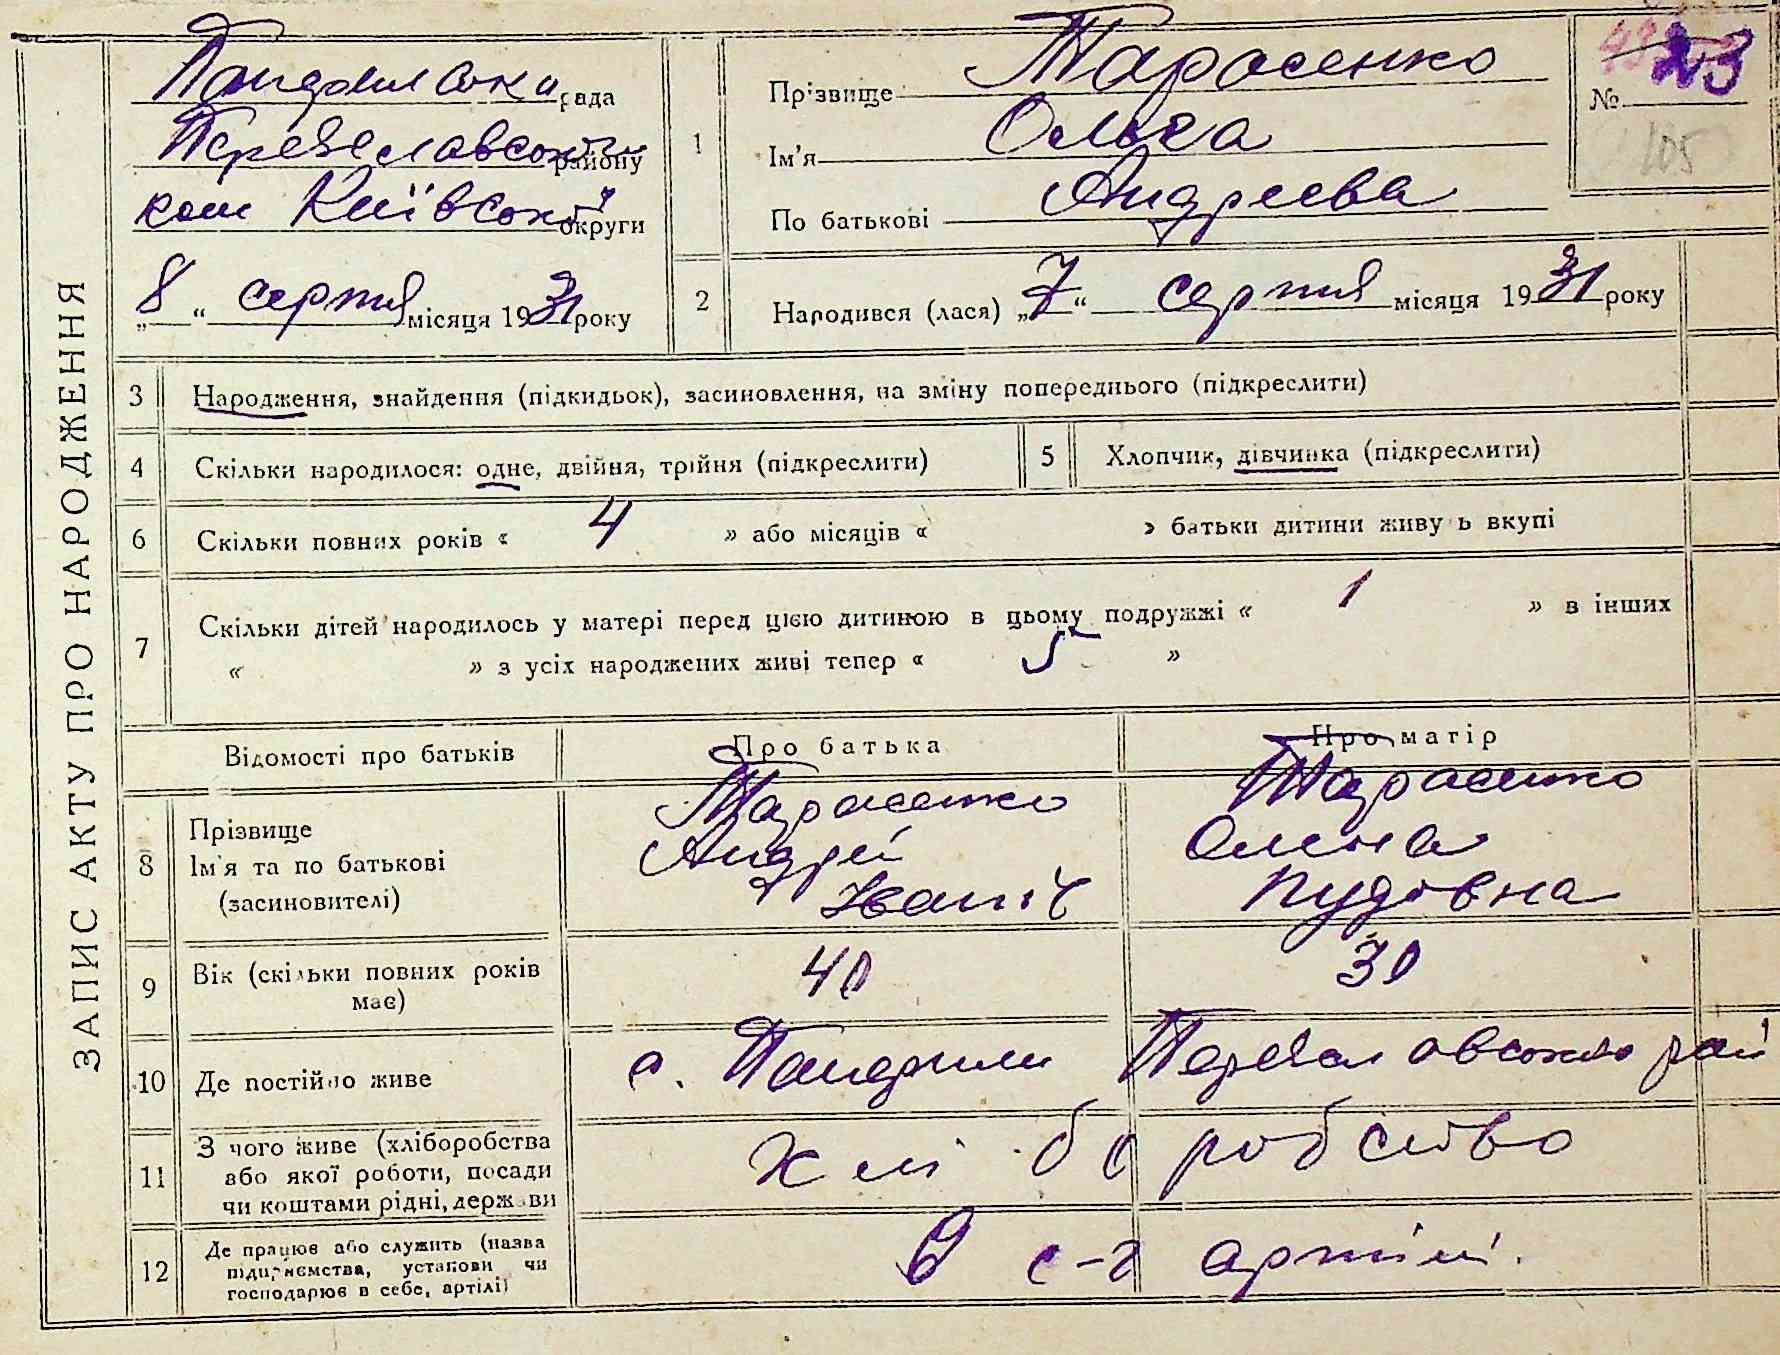 ЗАПИС АКТУ ПРО НАРОДЖЕННЯ
рада
Переяславського району
кол Київської округи
„8“ серпня місяця 1931 року
1
Прізвище Тарасенко
Ім'я Ольга
По батькові Андреева
№ 23
105
2
Народився (лася) „7“ серпня місяця 1931 року
3 Народження, знайдення (підкидьок), засиновлення, на зміну попереднього (підкреслити)
4 Скільки народилося: одне, двійня, трійня (підкреслити)
5 Хлопчик, дівчинка (підкреслити)
6 Скільки повних років « 4 » або місяців « » батьки дитини живуть вкупі
7 Скільки дітей народилось у матері перед цією дитиною в цьому подружжі « 1 » в інших
« » з усіх народжених живі тепер « 5 »
Відомості про батьків Про батька Про матір
8 Прізвище
Ім'я та по батькові
(засиновителі)
Тарасенко
Андрей
Іваніч
Тарасенко
Олена
Пудовна
9 Вік (скільки повних років
має)
40
30
10 Де постійно живе
с. Пандили Переяславського рай
11 З чого живе (хліборобства
або якої роботи, посади
чи коштами рідні, держави
хліборобство
12 Де працює або служить (назва
підприємства, установи чи
господарює в себе, артілі)
В с-г артілі.